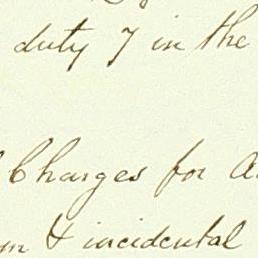 duty 7 in the
Charges for
& incidental